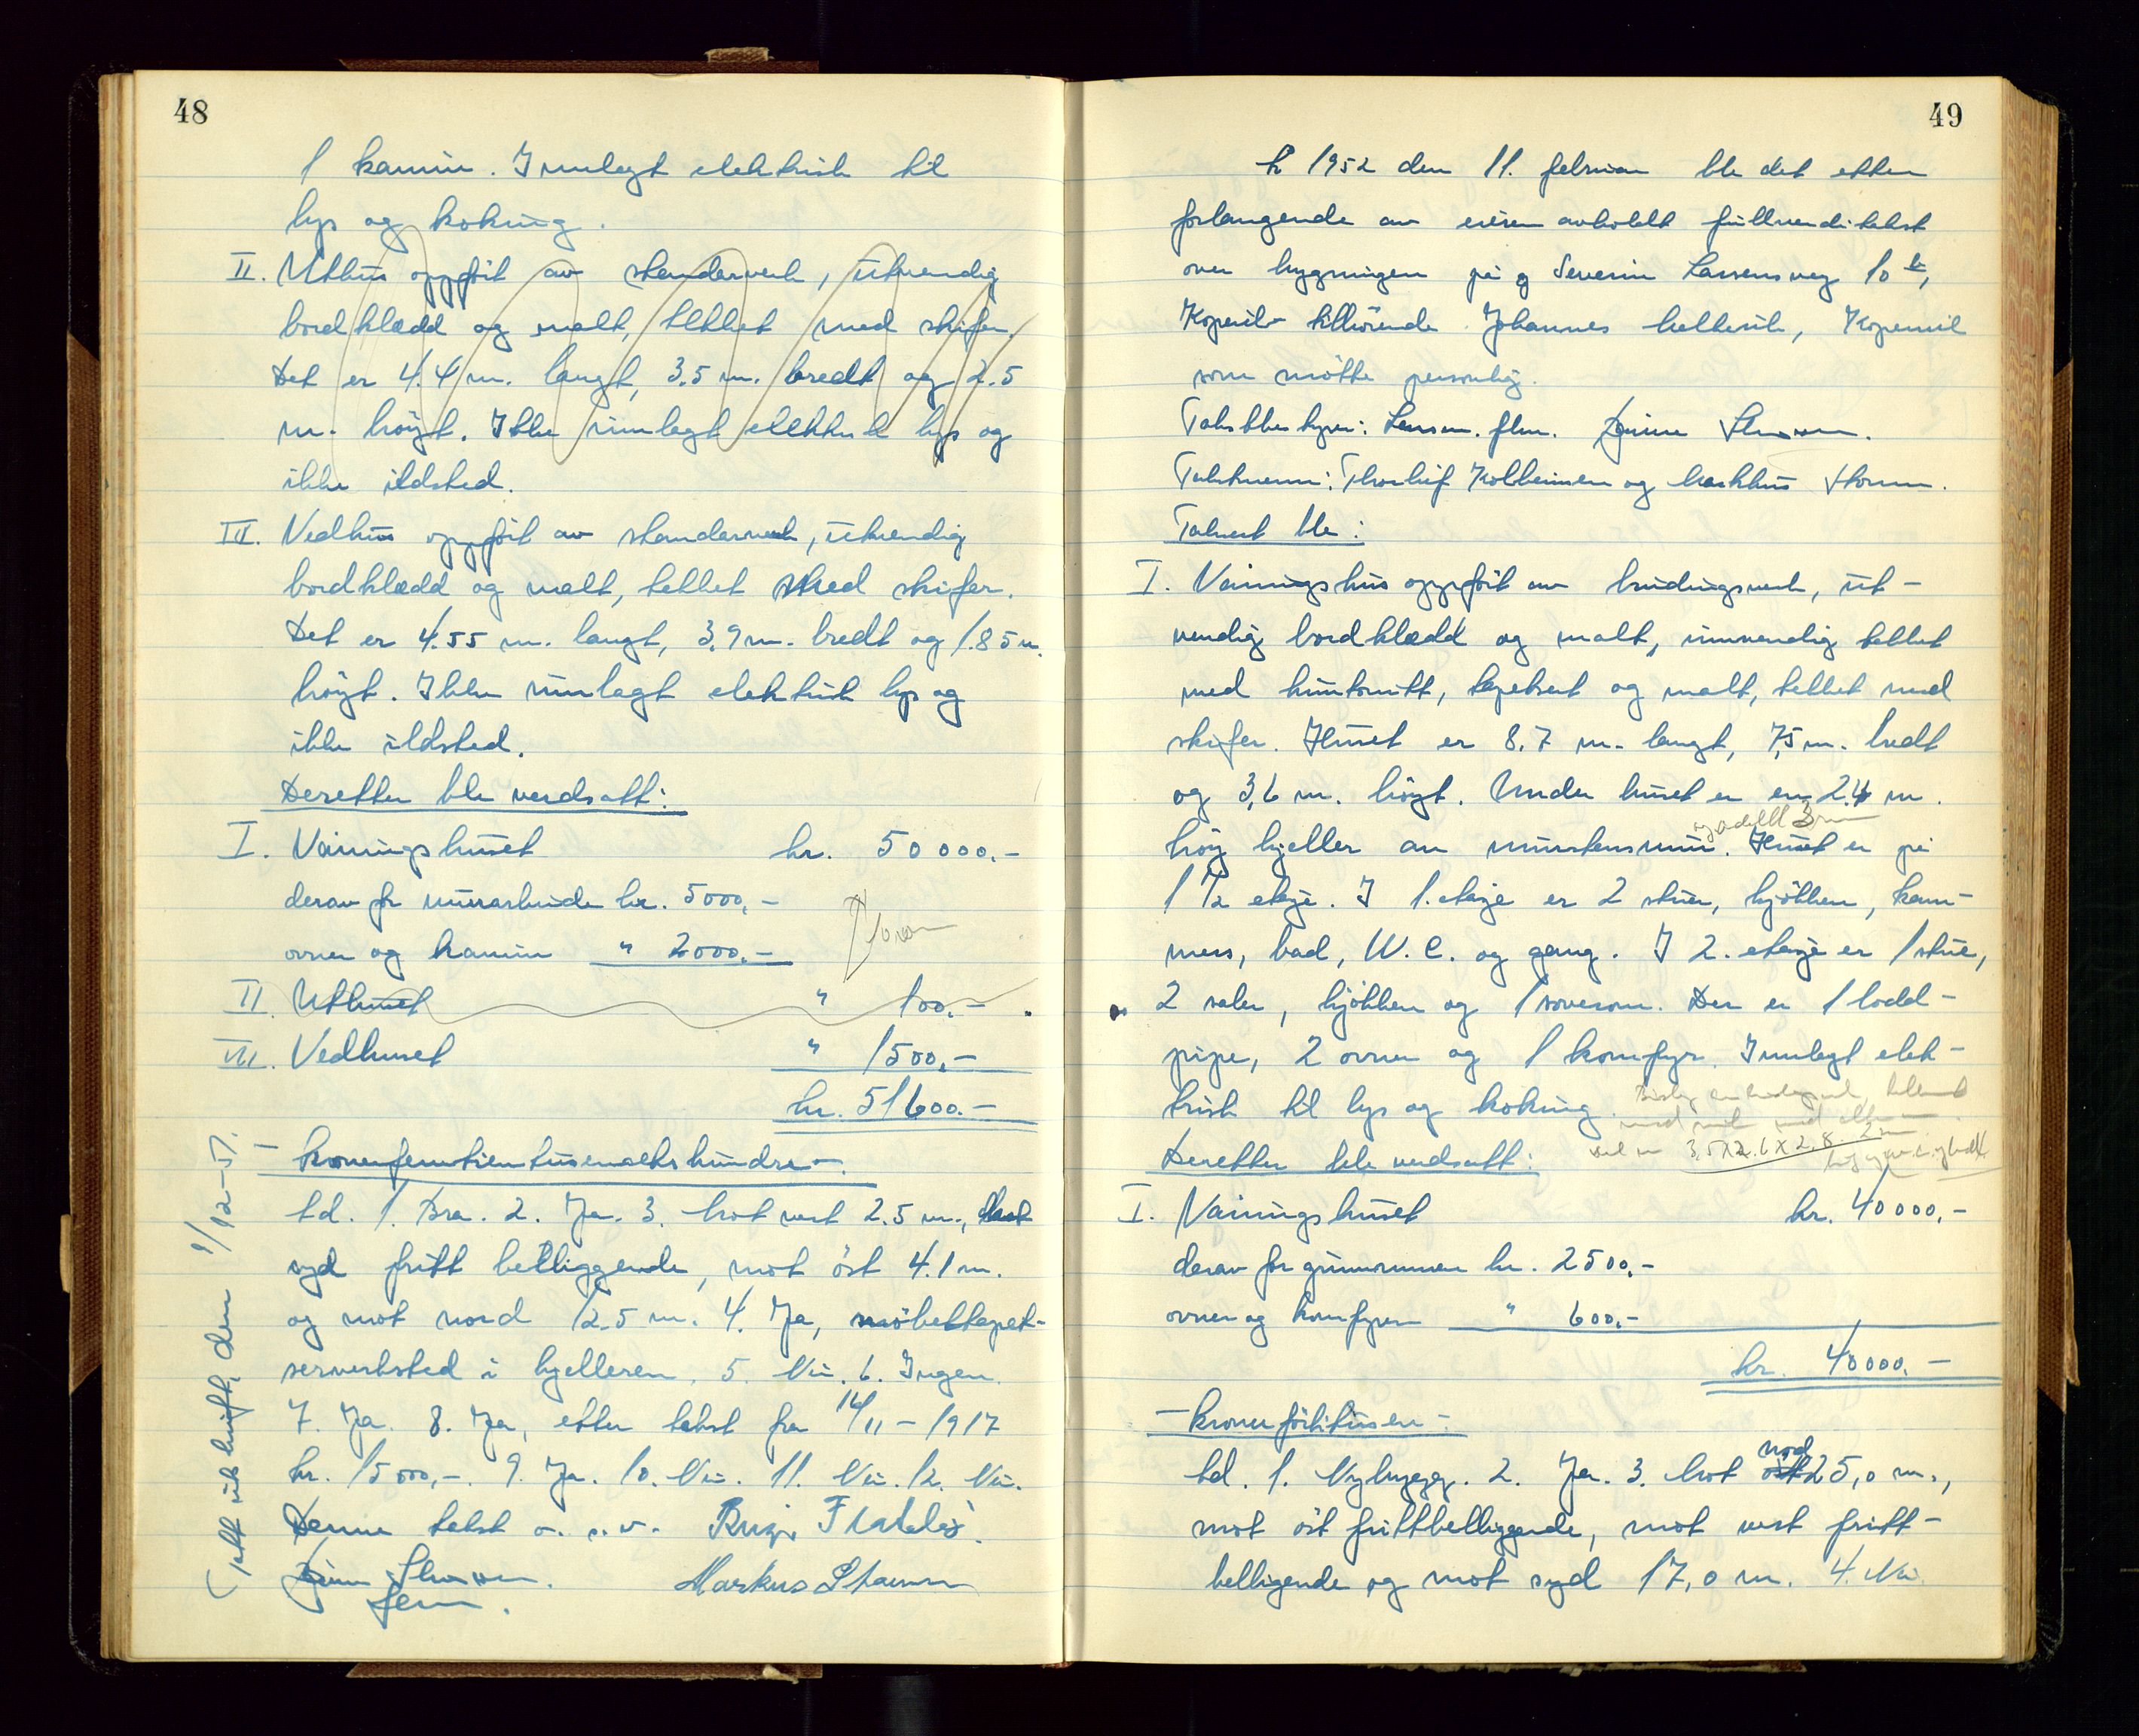 48
1 kamin. Innlagt elektrisk til
lys og koking.
II. Uthus oppført av standerverk, utvendig
bordklædd og malt, tekket med skifer.
Det er 4.4 m. langt, 3.5 m. bredt og 2.5
m. høyt. Ikke innlagt elektrisk lys og
ikke ildsted.
III. Vedhus oppført av standerverk, utvendig
bordklædd og malt, tekket med skifer.
Det er 4.55 m. langt, 3.9 m. bredt og 1.85 m.
høyt. Ikke innlagt elektrisk lys og
ikke ildsted.
Deretter ble verdsatt:
I. Våningshuset kr. 50000.-
derav for murarbeide kr. 5000,-
ovner og kamin " 2000.-
II. Uthuset " 100.-
III. Vedhuset " 1500,-
kr. 51600.-
- kronerfemtientusensekshundre -.
td. 1. Bra. 2. Ja. 3. Mot vest 2.5 m., mot
syd fritt beliggende, mot øst 4.1 m.
og mot nord 12.5 m. 4. Ja, møbeltapet-
serverksted i kjelleren. 5. Nei. 6. Ingen.
7. Ja. 8. Ja, etter takst fra 14/11-1917
kr. 15000,-. 9. Ja. 10. Nei. 11. Nei. 12. Nei.
Denne takst o. s. v.
Markus Stormn
lem.
(Sett utskrift, den 1/12-51.
49
År 1952 den 11. februar ble det etter
forlangende av eieren avholdt fullverditakst
over bygningen på g Severin Larsensveg 10 b,
Kopervik tilhørende Johannes Melkevik, Kopervik
som møtte personlig.
Takstbestyrer: Lensm. flm.
Takstmenn: Thorleif Kolbeinsen og Markus Stormn.
Taksert ble:
I. Våningshus oppført av bindingsverk, ut-
vendig bordklædd og malt, innvendig tekket
med huntonitt, tapetsert og malt, tekket med
skifer. Huset er 8.7 m. langt, 7,5 m. bredt
og 3,6 m. høyt. Under huset er en 2.4 m.
høy kjeller av murstensmur. Huset er på
1 1/2 etasje. I 1. etasje er 2 stuer, kjøkken, kam-
mers, bad, W.C. og gang. I 2. etasje er 1 stue,
2 saler, kjøkken og 1 soverom. Der er 1 lodd-
pipe, 2 ovner og 1 komfyr. Innlagt elek-
trisk til lys og koking.
3,5 x 2.6 x 2,8
Deretter ble verdsatt:
I. Våningshuset kr. 40000,-
derav for grunnmuren kr. 2500,-
ovner og komfyren " 600,-
kr. 40000.-
- kroner førtitusen -
td. 1. Nybygg. 2. Ja. 3. Mot nord 25,0 m.,
mot øst frittbeliggende, mot vest fritt-
beliggende og mot syd 17,0 m. 4. Nei.